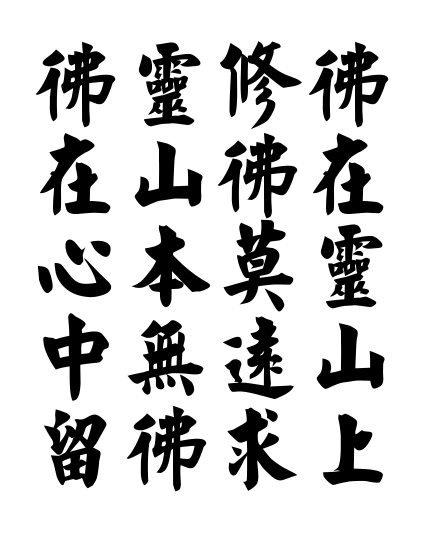 彿在靈山上
修彿莫遠求
靈山本無彿
彿在心中留